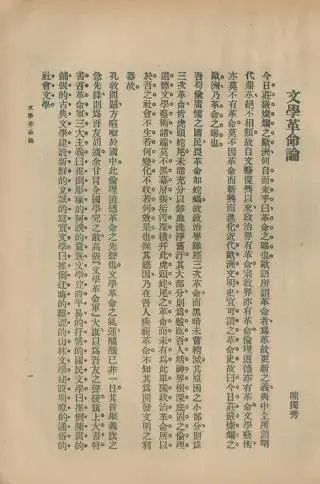 文學革命論
陳獨秀
今日莊嚴燦爛之歐洲何自而來乎曰革命之賜也歐語所謂革命者爲革故更新之義與中土所謂朝
代鼎革絕不相類故自文藝復興以來政治界有革命宗教界亦有革命倫理道德亦有革命文學藝術
亦莫不有革命莫不因革命而新興而進化近代歐洲文明史宜可謂之革命史故曰今日莊嚴燦爛之
歐洲乃革命之賜也
吾苟偷庸懦之國民畏革命如蛇蠍故政治界雖經三次革命而黑暗未嘗稍減其原因之小部分則爲
三次革命皆虎頭蛇尾未能充分以鮮血洗淨舊汙其大部分則爲盤踞吾人精神界根深底固之倫理
道德文學藝術諸端莫不黑幕層張垢汙深積並此虎頭蛇尾之革命而未有焉此單獨政治革命所以
於吾之社會不生若何變化不收若何效果也推其總因乃在吾人疾視革命不知其爲開發文明之利
器故
孔教問題方喧呶於國中此倫理道德革命之先聲也文學革命之氣運醞釀已非一日其首舉義旗之
急先鋒則爲吾友胡適余甘冒全國學究之敵高張「文學革命軍」大旗以爲吾友之聲援旗上大書特
書吾革命軍三大主義曰推倒雕琢的阿諛的貴族文學建設平易的抒情的國民文學曰推倒陳腐的
鋪張的古典文學建設新鮮的立誠的寫實文學曰推倒迂晦的艱澀的山林文學建設明瞭的通俗的
社會文學
文學革命論